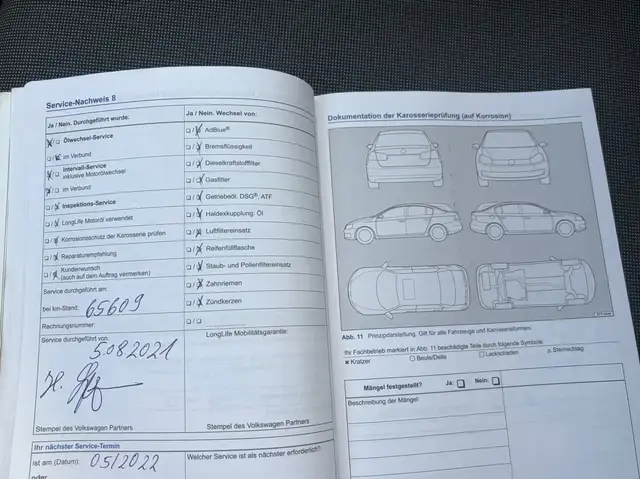 Service-Nachweis 8
Ja / Nein. Durchgeführt wurde:
Ölwechsel-Service
im Verbund
Intervall-Service
inklusive Motorölwechsel
im Verbund
Inspektions-Service
LongLife Motoröl verwendet
Korrosionsschutz der Karosserie prüfen
Reparaturempfehlung
Kundenwunsch
(auch auf dem Auftrag vermerken)
Service durchgeführt am:
bei km-Stand: 65609
Rechnungsnummer:
Service durchgeführt von:
5.08.2021
Stempel des Volkswagen Partners
Ihr nächster Service-Termin
ist am (Datum): 05/2022
oder
Ja / Nein. Wechsel von:
AdBlue®
Bremsflüssigkeit
Dieselkraftstofffilter
Gasfilter
Getriebeöl: DSG®, ATF
Haldexkupplung: Öl
Luftfiltereinsatz
Reifenfüllflasche
Staub- und Pollenfiltereinsatz
Zahnriemen
Zündkerzen
LongLife Mobilitätsgarantie:
Stempel des Volkswagen Partners
Welcher Service ist als nächster erforderlich?
Dokumentation der Karosserieprüfung (auf Korrosion)
Abb. 11 Prinzipdarstellung. Gilt für alle Fahrzeuge und Karosserieformen.
Ihr Fachbetrieb markiert in Abb. 11 beschädigte Teile durch folgende Symbole:
Kratzer Beule/Delle Lackschäden Steinschlag
Mängel festgestellt? Ja: Nein:
Beschreibung der Mängel: